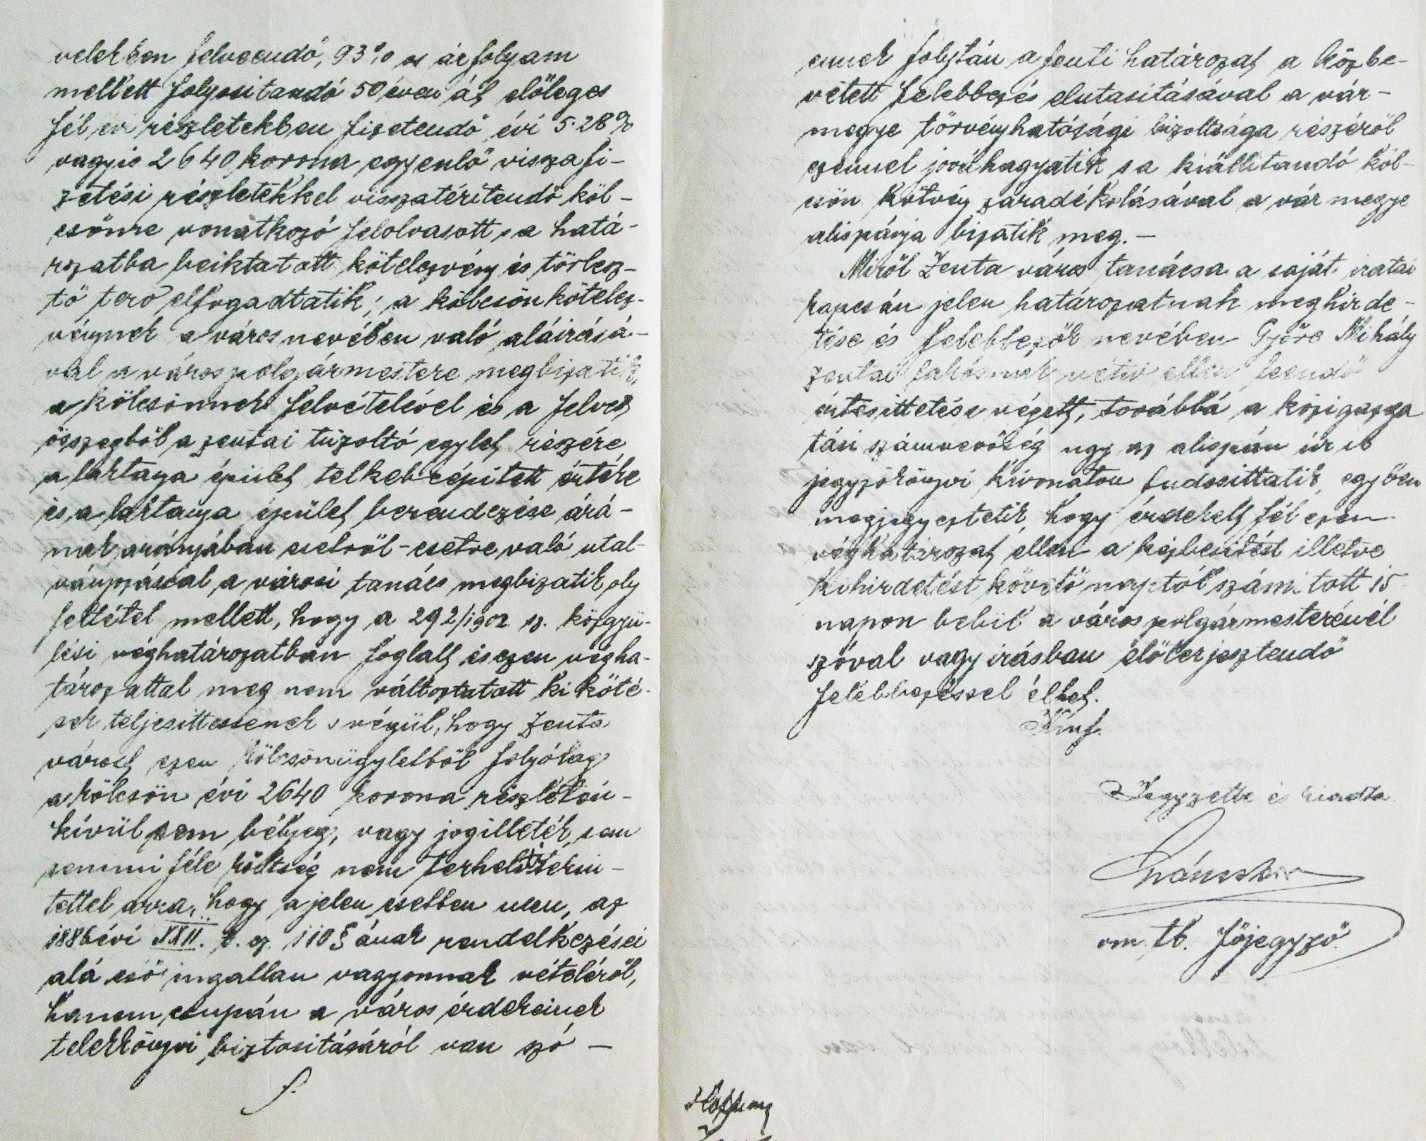 velekben felveendő, 93% os árfolyam
mellett folyositandó 50 éven át előleges
fél évi részletekben fizetendő évi 5.28%
vagyis 2640 korona egyenlő visszafi-
zetési részletekkel visszatéritendő köl-
csönre vonatkozó felolvasott s a hatá-
rozatba beiktatott kötelezvény és törlesz-
tő terv elfogadtatik; a kölcsön kötelez-
vénynek a város nevében való aláirásá-
val a város polgármestere megbizatik,
a kölcsönnek felvételével és a felvett
összegből a zentai tűzoltó egylet részére
a laktanya épület telkebe épitett értéke
és a laktanya épület berendezése árá-
nak arányában esetről-esetre való utal-
ványozásával a városi tanács megbizatik oly
feltétel mellett, hogy a 292/1902 sz. közgyü-
lési véghatározatban foglalt és ezen végha-
tározattal meg nem változtatott kiköté-
sek teljesittessenek s végül, hogy Zenta
várost ezen kölcsönügyletből folyólag
a kölcsön évi 2640 korona részletén-
kívül sem bélyeg, vagy jogilleték, sem
semmi féle költség nem terheli tekin-
tettel arra, hogy a jelen esetben nem az
1886 évi XXII. t. cz. 110 § ának rendelkezései
alá eső ingatlan vagyonnak vételéről,
hanem csupán a város érdekeinek
telekkönyvi biztositásáról van szó —
ennek folytán a fenti határozat a közbe-
vetett felebbezés elutasitásával a vár-
megye törvényhatósági bizottsága részéről
ezennel jóváhagyatik s a kiállitandó köl-
csön kötvény záradékolásával a vármegye
alispánja bizatik meg. —
Miről Zenta város tanácsa a saját iratai
kapcsán jelen határozatnak meghirde-
tése és felebbezők nevében Győre Mihály
zentai lakosnak vétív ellen leendő
értesittetése végett, továbbá a közigazga
tási számvevőség ugy az alispán úr is
jegyzőkönyvi kivonaton tudosittatik, egyben
megjegyeztetik, hogy érdekelt fél ezen
véghatározat ellen a kézbesitést illetve
kihirdetést követő naptól számitott 15
napon belül a város polgármesterénél
szóval vagy irásban előterjesztendő
felebbezéssel élhet.
Kmf.
Jegyzette és kiadta
vm. tb. főjegyző